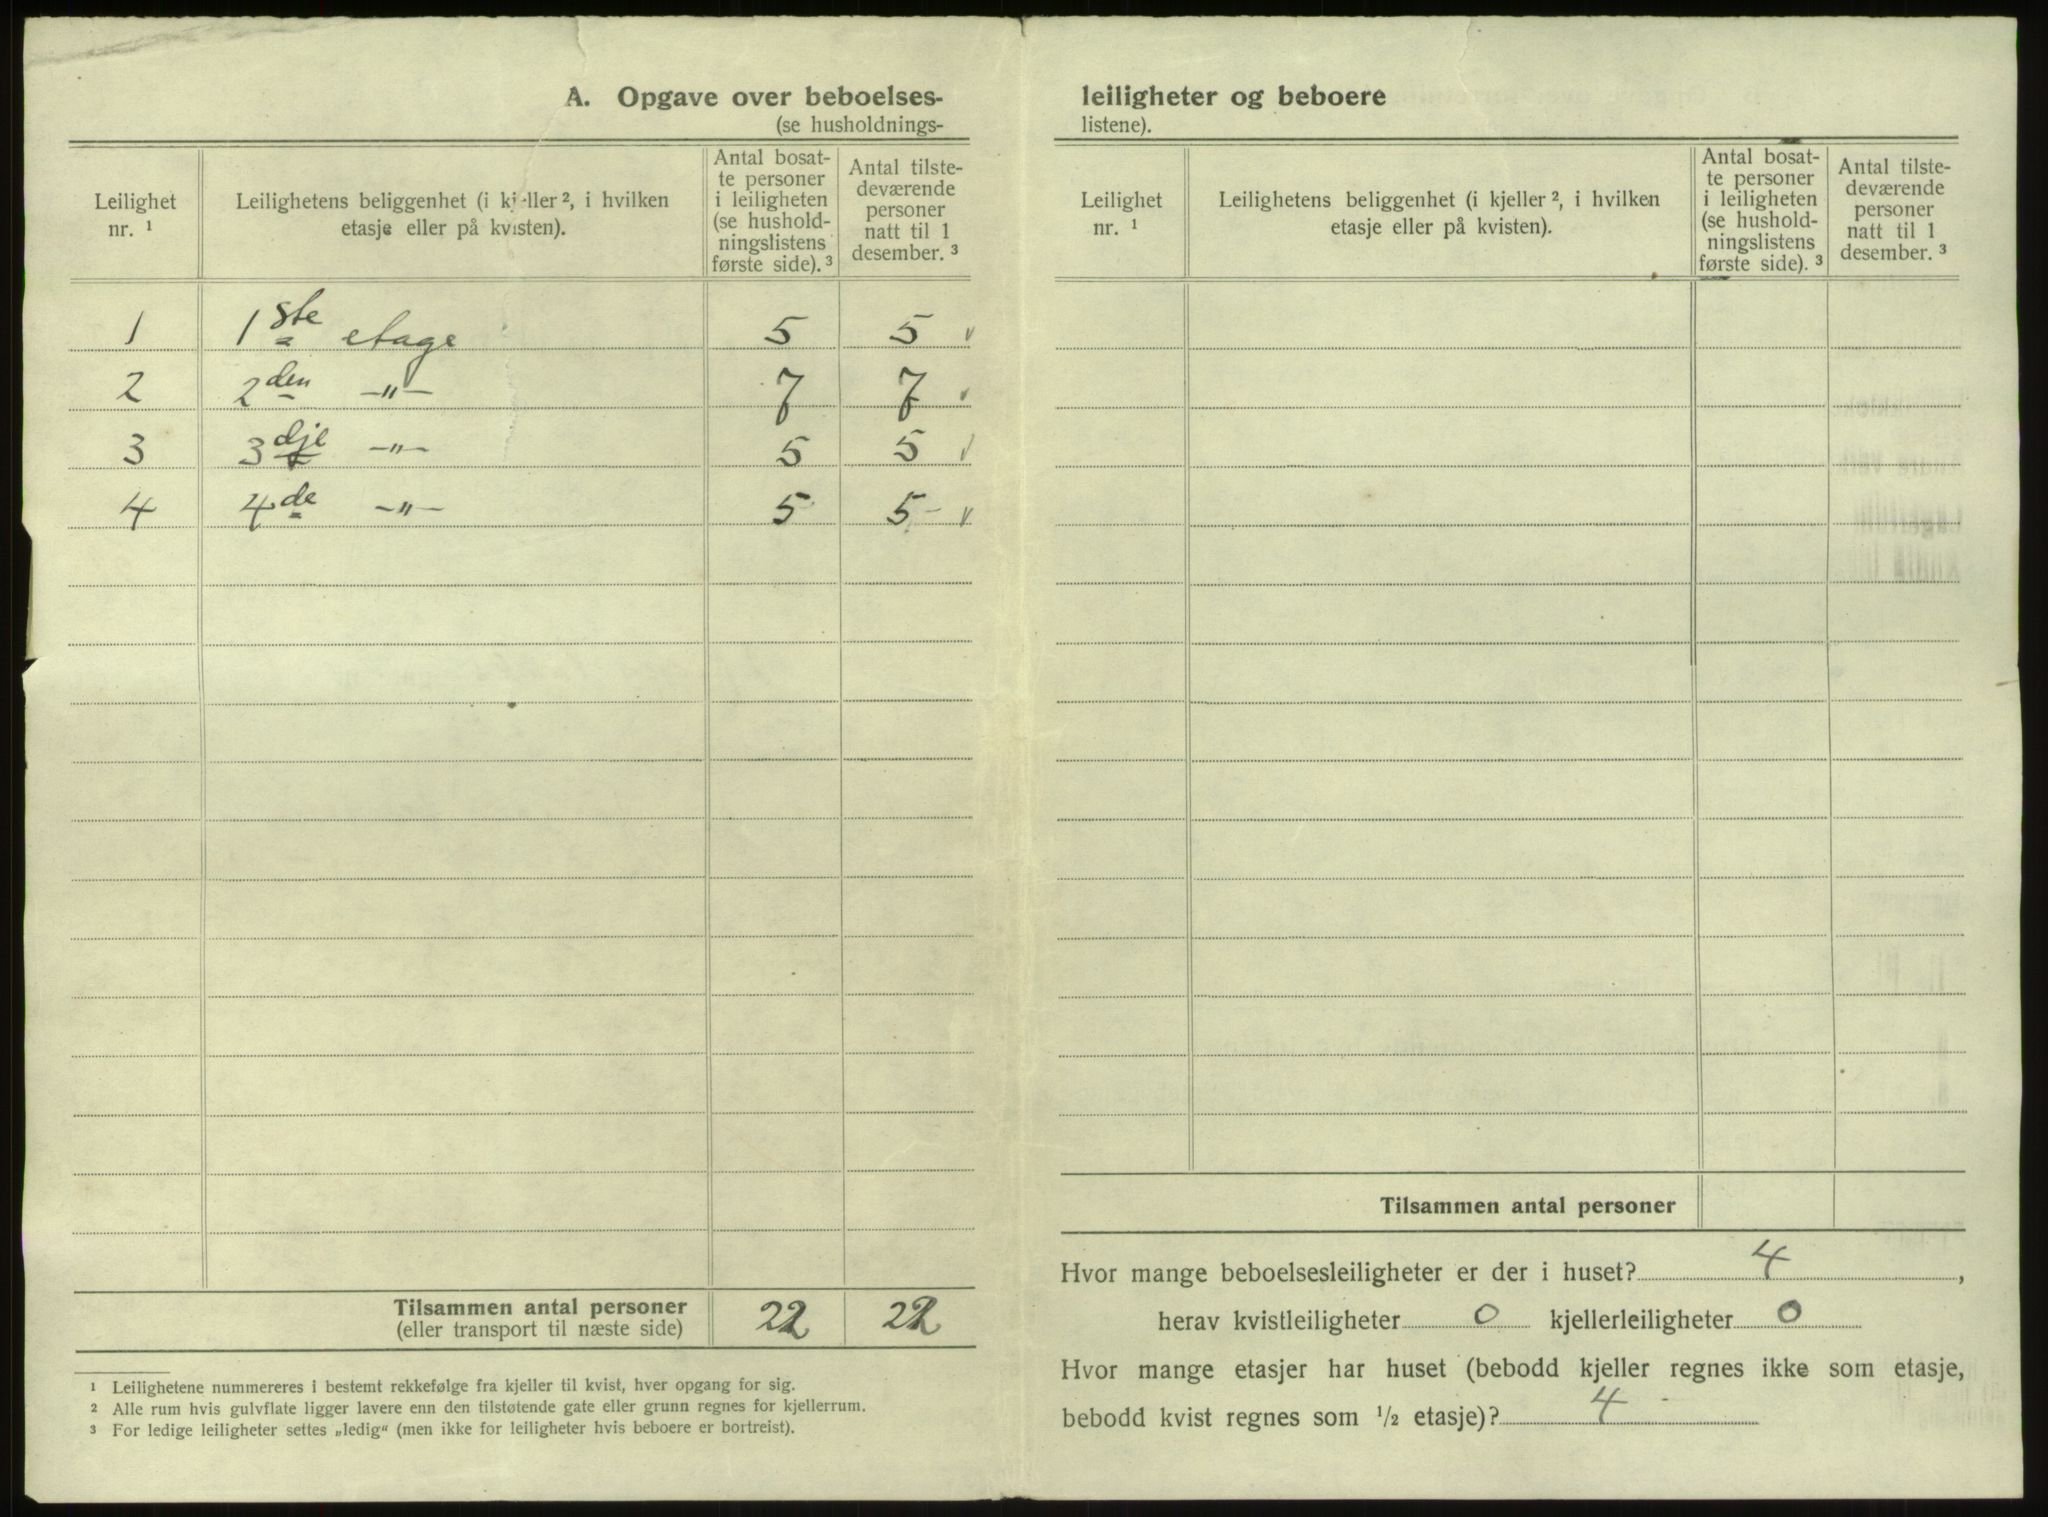 A. Opgave over beboelses-
(se husholdnings-
Leilighet
nr. ¹
Leilighetens beliggenhet (i kjeller ², i hvilken
etasje eller på kvisten).
Antal bosat-
te personer
i leiligheten
(se hushold-
ningslistens
første side). ³
Antal tilste-
deværende
personer
natt til 1
desember. ³
1 1ste etage 5 5 v
2 2den —"— 7 7 v
3 3dje —"— 5 5 v
4 4de —"— 5 5 v
Tilsammen antal personer 22 22
(eller transport til næste side)
¹ Leilighetene nummereres i bestemt rekkefølge fra kjeller til kvist, hver opgang for sig.
² Alle rum hvis gulvflate ligger lavere enn den tilstøtende gate eller grunn regnes for kjellerrum.
³ For ledige leiligheter settes „ledig“ (men ikke for leiligheter hvis beboere er bortreist).
leiligheter og beboere
listene).
Leilighet
nr. ¹
Leilighetens beliggenhet (i kjeller ², i hvilken
etasje eller på kvisten).
Antal bosat-
te personer
i leiligheten
(se hushold-
ningslistens
første side). ³
Antal tilste-
deværende
personer
natt til 1
desember. ³
Tilsammen antal personer
Hvor mange beboelsesleiligheter er der i huset? 4,
herav kvistleiligheter 0 kjellerleiligheter 0
Hvor mange etasjer har huset (bebodd kjeller regnes ikke som etasje,
bebodd kvist regnes som ½ etasje)? 4